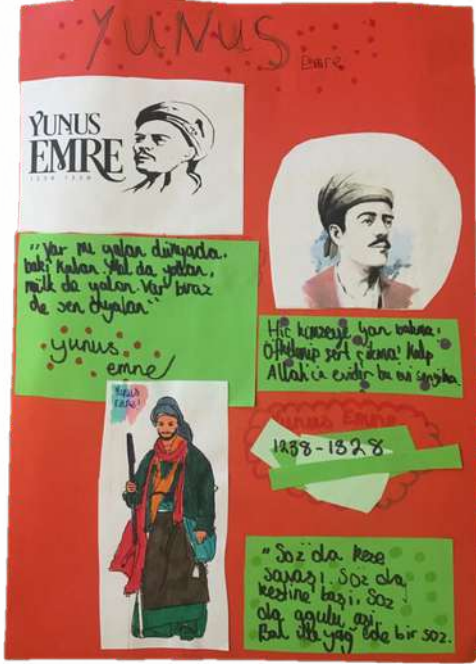 YUNUS
Emre
YUNUS
EMRE
"Var mı yalan dünyada,
baki kalan Mal da yalan,
mülk de yalan Var biraz
de sen oyalan"
yunus
emre
Hiç kimseye yan bakma!
Öfkelenip sert çıkma! Kalp
Allah'ın evidir bu evi sakın yıkma.
Yunus
Emre
Yunus Emre
1238-1328
"Söz ola kese
savaşı. Söz ola
kestire başı, Söz
ola ağulu aşı,
Bal ile yağ ede bir söz.